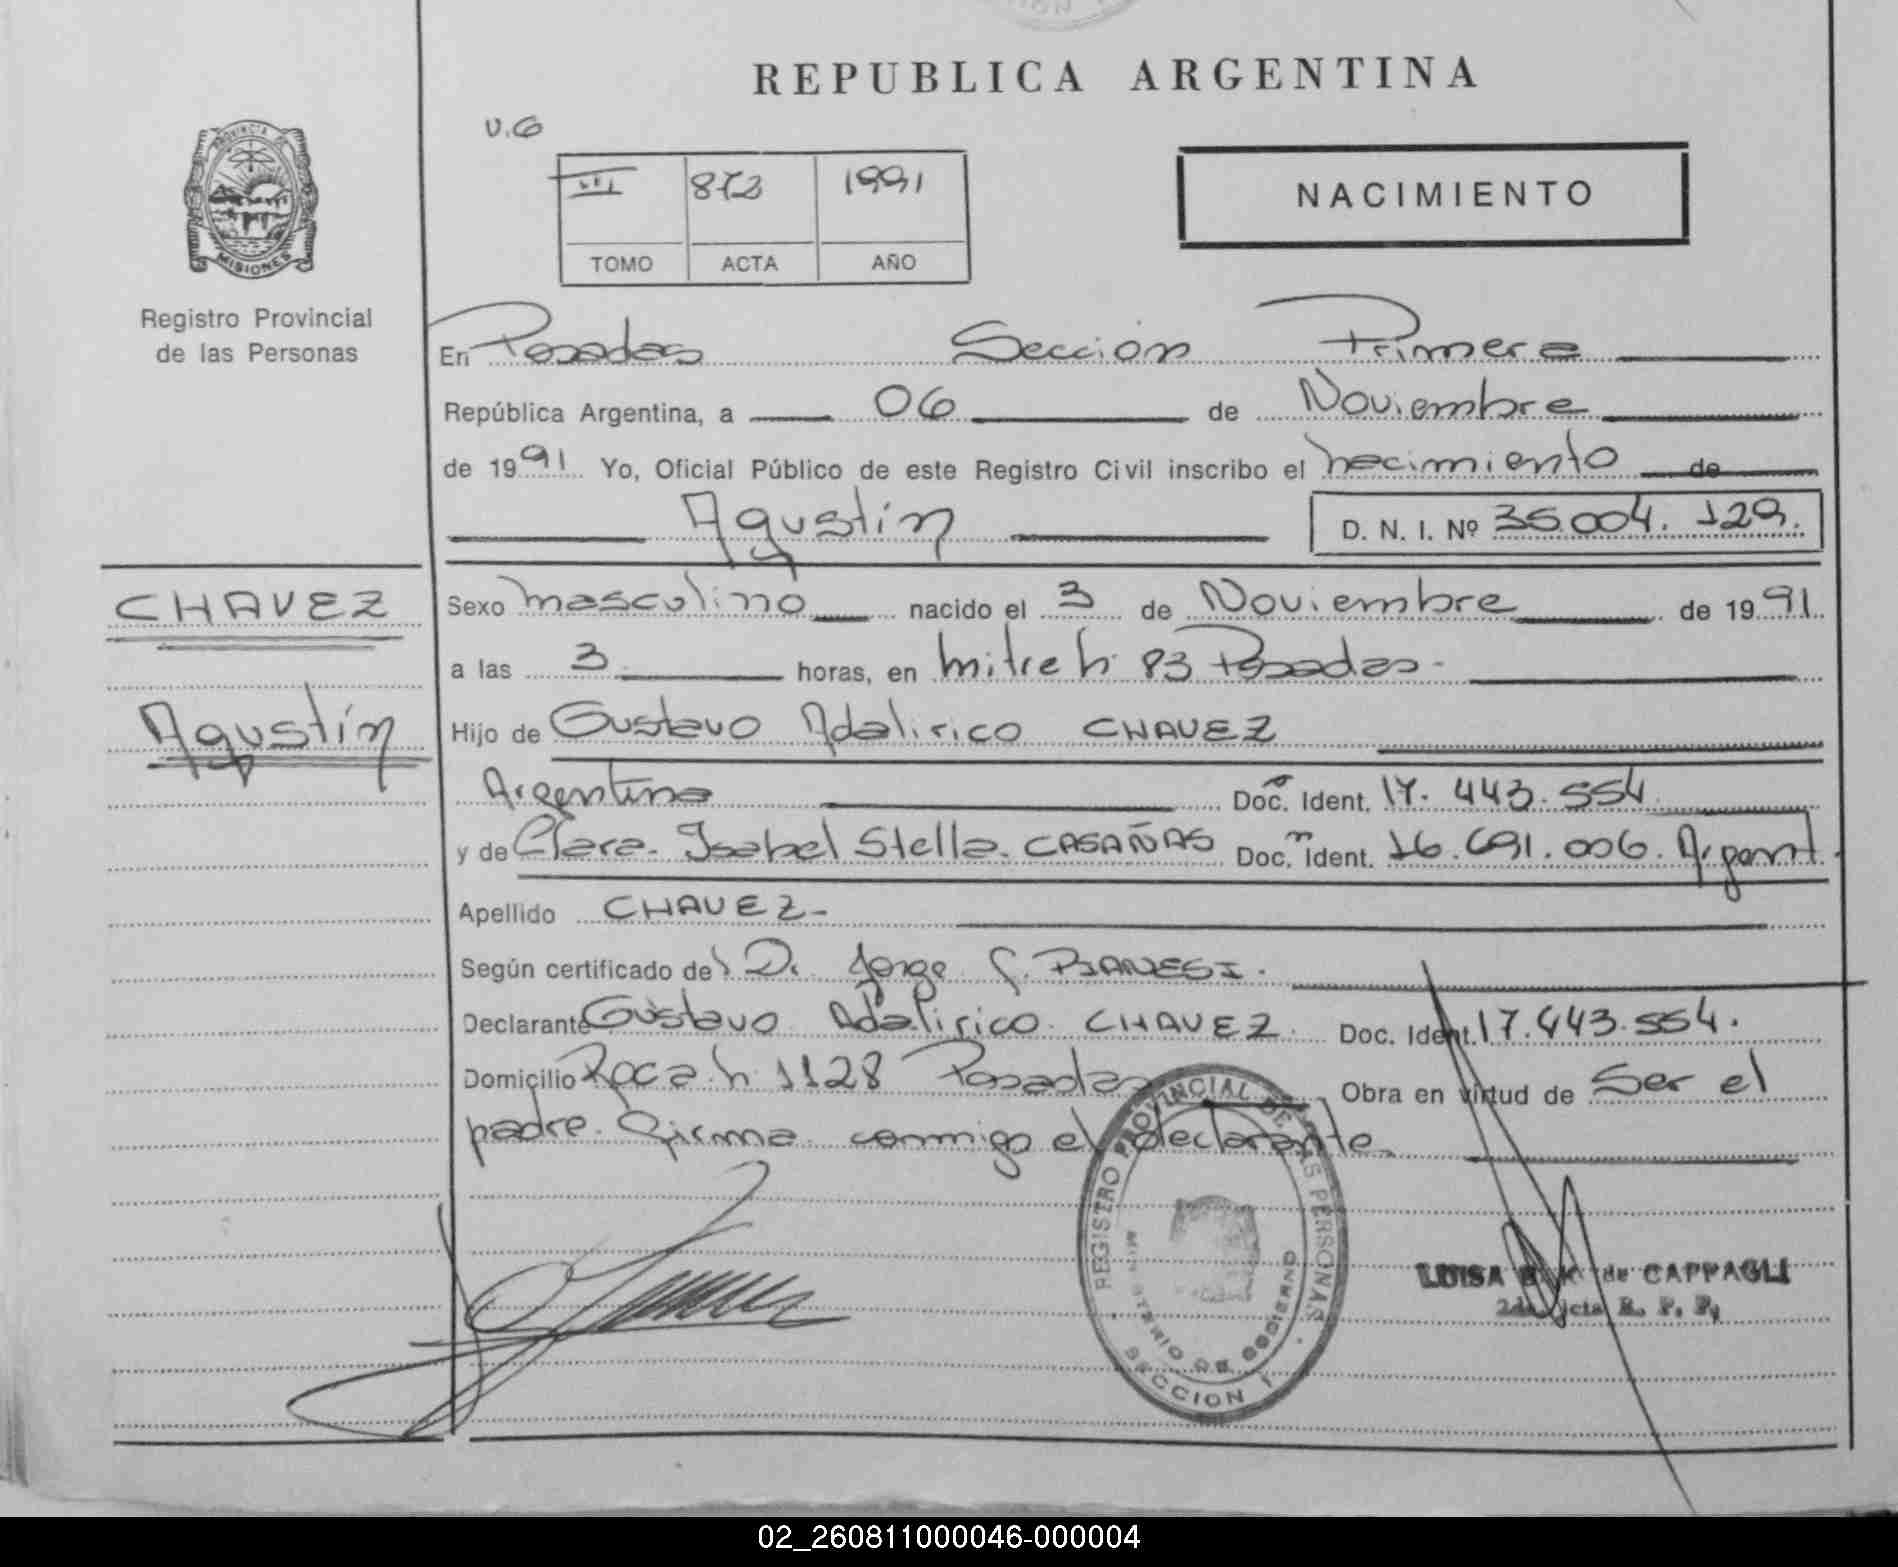 REPUBLICA ARGENTINA
PROVINCIA DE
MISIONES
Registro Provincial
de las Personas
V.G
III 872 1991
TOMO ACTA AÑO
NACIMIENTO
En Posadas Sección Primera
República Argentina, a 06 de Noviembre
de 1991 Yo, Oficial Público de este Registro Civil inscribo el nacimiento de
Agustín D. N. I. Nº 35.004.129.
CHAVEZ
Agustín
Sexo masculino nacido el 3 de Noviembre de 1991
a las 3 horas, en Mitre h. 83 Posadas.
Hijo de Gustavo Adalirico CHAVEZ
Argentino Doc. Ident. 17.443.554
y de Clara Isabel Stella CASAÑAS Doc. Ident. 16.691.006. Argent.
Apellido CHAVEZ-
Según certificado del D. Jorge PIANESI.
Declarante Gustavo Adalirico CHAVEZ. Doc. Ident. 17.443.554.
Domicilio Roca h. 1128 Posadas Obra en virtud de Ser el
padre. Firma conmigo el declarante.
REGISTRO PROVINCIAL DE LAS PERSONAS
MINISTERIO DE GOBIERNO
SECCION 1
LUISA de CAPPAGLI
R. P. P.
02_260811000046-000004